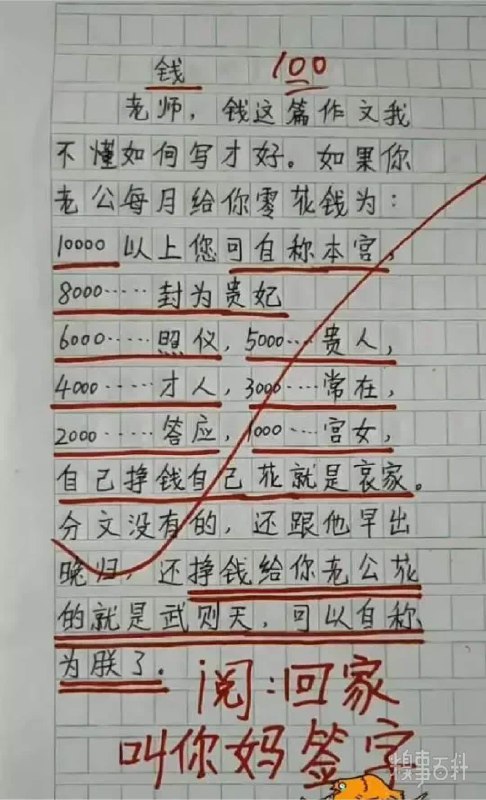 钱 100
老师，钱这篇作文我
不懂如何写才好。如果你
老公每月给你零花钱为：
10000以上您可自称本宫，
8000……封为贵妃
6000……照仪，5000…贵人，
4000……才人，3000…常在，
2000……答应，1000…宫女，
自己挣钱自己花就是哀家。
分文没有的，还跟他早出
晚归，还挣钱给你老公花
的就是武则天，可以自称
为朕了.
阅：回家
叫你妈签字
糗事百科